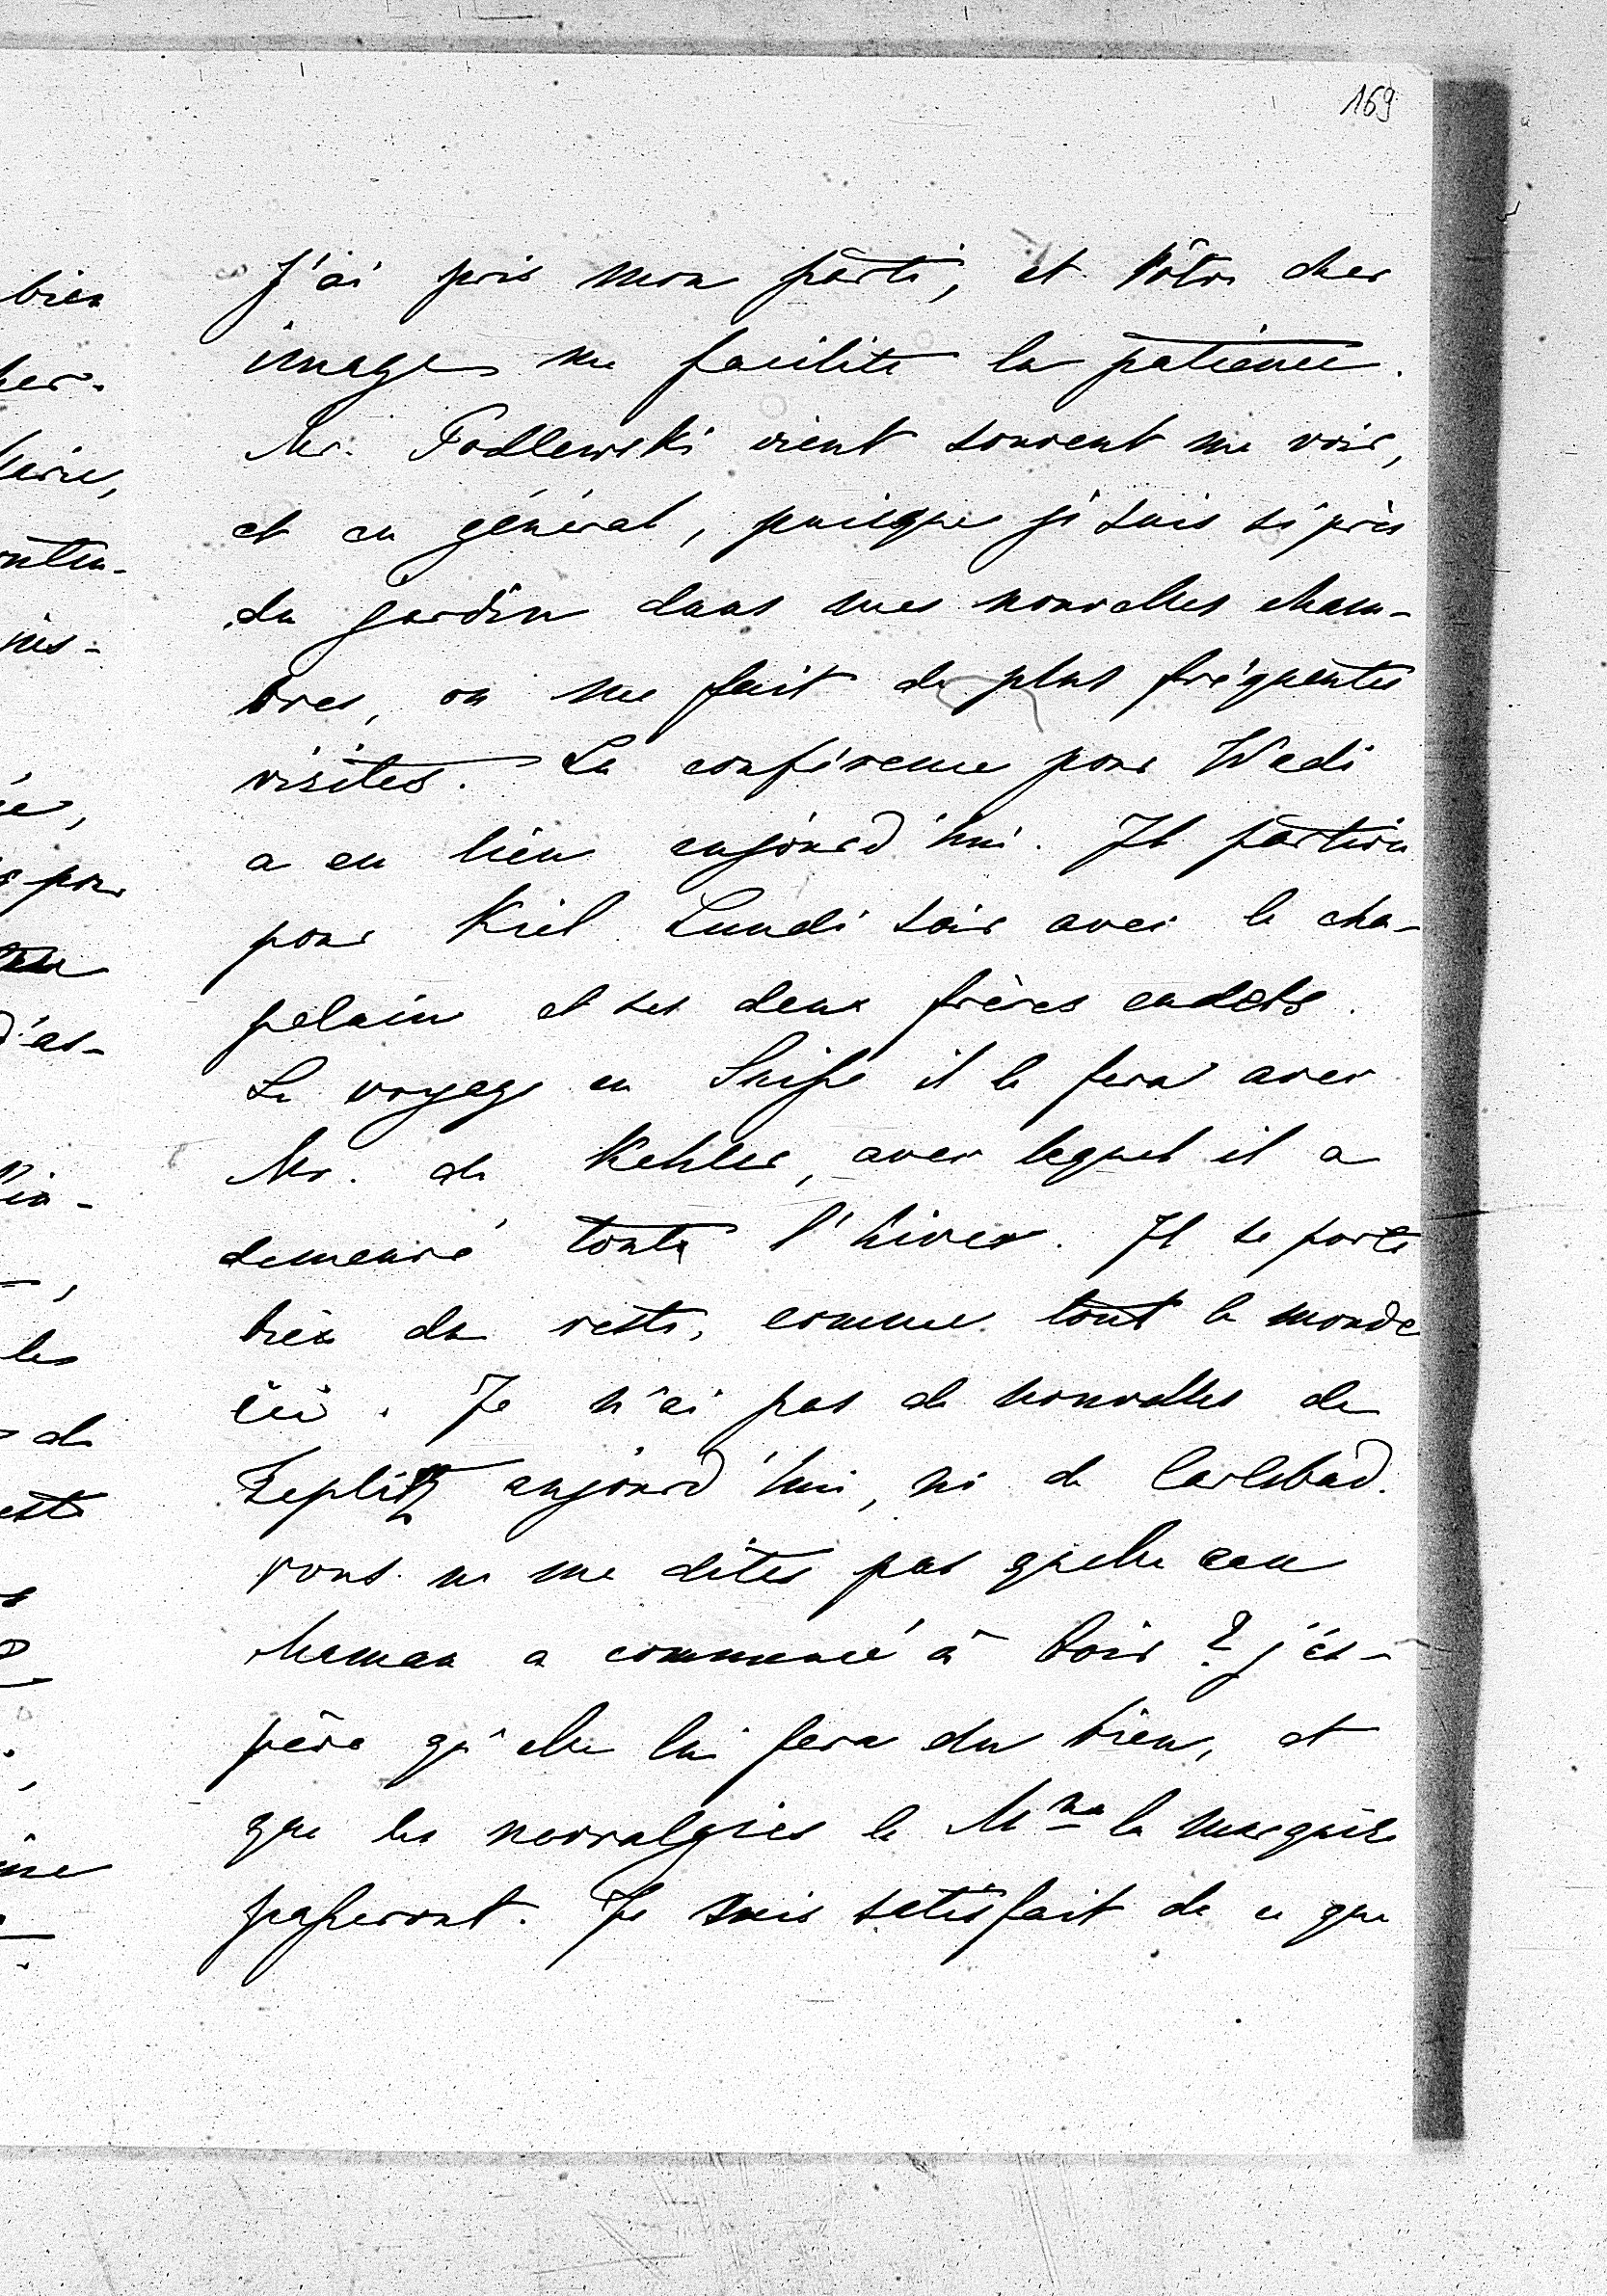 169
J'ai pris mon parti, et Vôtre cher
image me facilite la patience.
Mr. Podlewski vient souvent me voir,
et en général, puisque je suis si près
du jardin dans mes nouvelles cham-
bres, on me fait de plus fréquentes
visites. La conférence pour Wadi
a eu lieu aujourd'hui. Il partira
pour Kiel Lundi soir avec le cha-
pelain et ses deux frères cadets.
Le voyage en Suisse il le fera avec
Mr. de Kehler, avec lequel il a
demeuré toute l'hiver. Il se porte
bien du reste, comme tout le monde
ici. Je n'ai pas de nouvelles de
Teplitz aujourd'hui, ni de Carlsbad.
Vous ne me dites pas quelle eau
Maman a commencé à boir? j'es-
père qu'elle lui fera du bien, et
que les nevralgies de Mme la marquise
passeront. Je suis satisfait de ce que
bien
her-
onten-
nis-
pour
d'as-
les
de